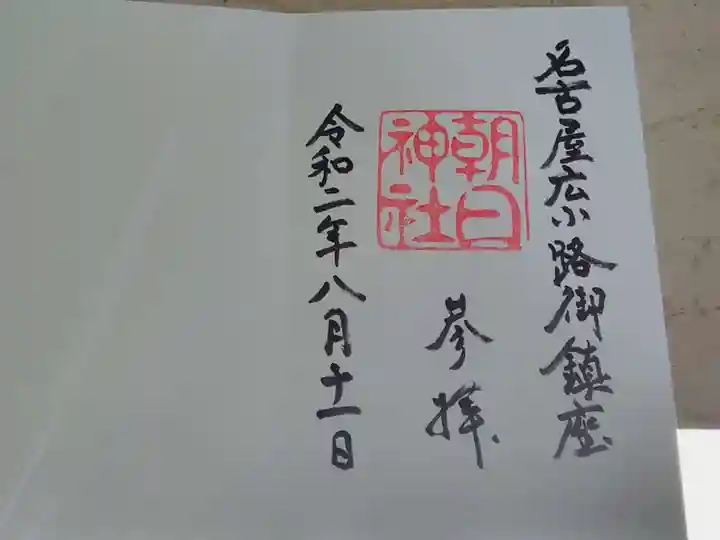 名古屋広小路御鎮座
朝日
神社
参拝
令和二年八月十一日